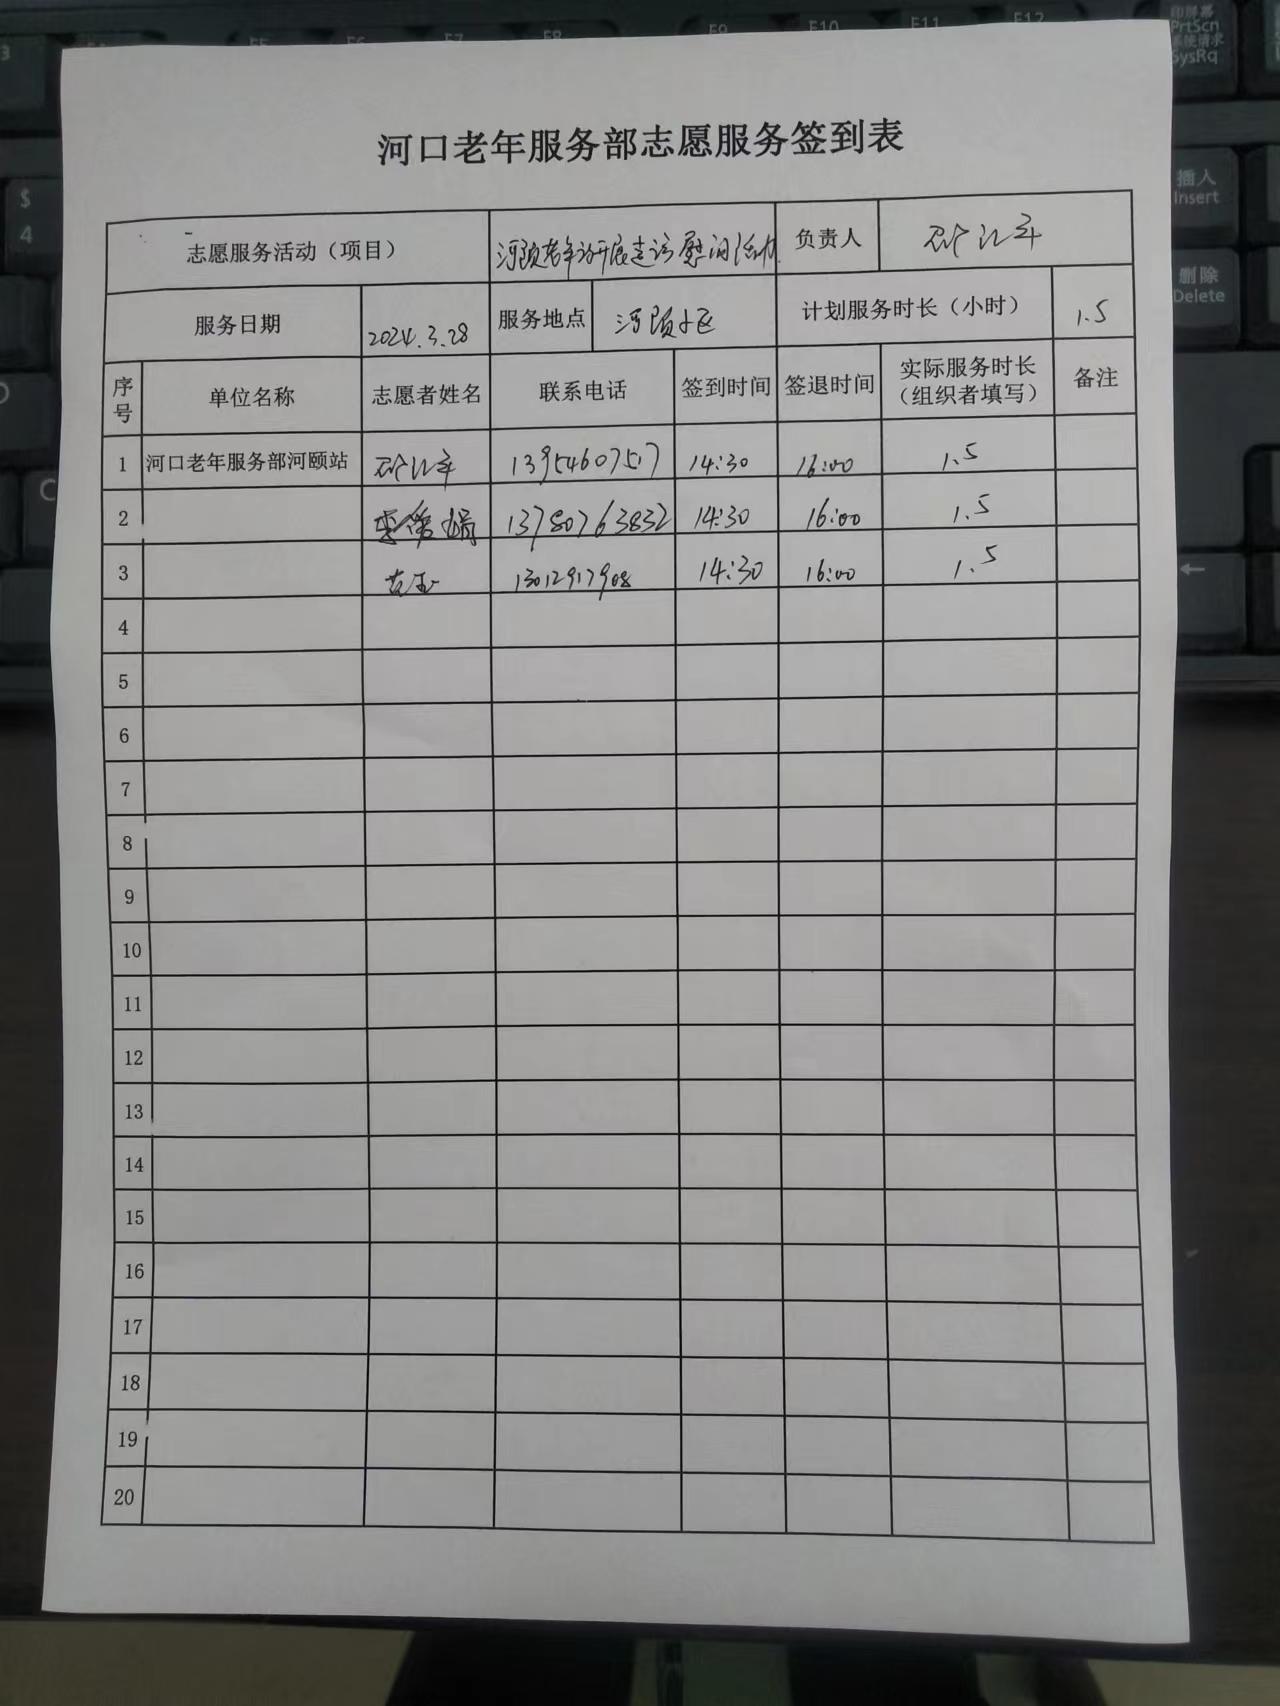 河口老年服务部志愿服务签到表
志愿服务活动（项目） 河颐老年站开展走访慰问活动 负责人
服务日期 2024.3.28 服务地点 河颐小区 计划服务时长（小时） 1.5
序号 单位名称 志愿者姓名 联系电话 签到时间 签退时间 实际服务时长（组织者填写） 备注
1 河口老年服务部河颐站 14:30 16:00 1.5
2 13780763832 14:30 16:00 1.5
3 13012917908 14:30 16:00 1.5
4
5
6
7
8
9
10
11
12
13
14
15
16
17
18
19
20
印屏幕
PrtScn
系统请求
SysRq
插入
Insert
删除
Delete
$
4
F7
F8
F9
F10
F11
F12